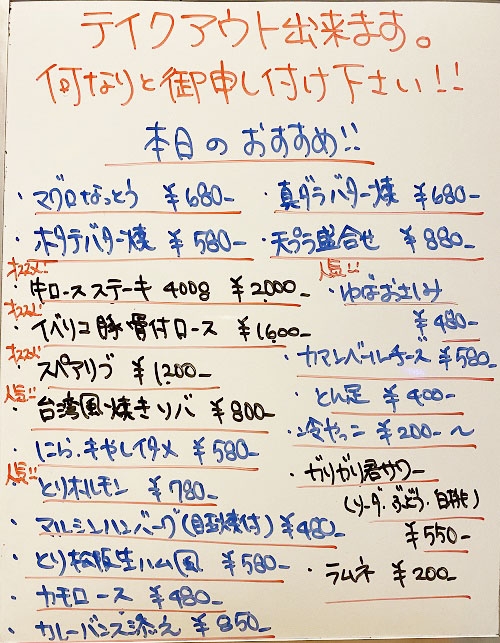 テイクアウト出来ます。
何なりと御申し付け下さい!!
本日のおすすめ!!
・マグロなっとう ¥680-
・ホタテバター焼 ¥580-
オススメ!
・牛ロースステーキ 400g ¥2000-
オススメ!
・イベリコ豚骨付ロース ¥1,600-
オススメ!
・スペアリブ ¥1,200-
人気!!
・台湾風焼きソバ ¥800-
・にら・もやしイタメ ¥580-
人気!!
・とりホルモン ¥780-
・マルシンハンバーグ(目玉焼付) ¥480-
・とり松阪生ハム風 ¥580-
・カモロース ¥480-
・カレーバンズ添え ¥850-
・真ダラバター焼 ¥680-
・天プラ盛合せ ¥880-
人気!!
・ゆばおさしみ
¥480-
・カマンベールチーズ ¥580-
・とん足 ¥400-
・冷やっこ ¥200-〜
・ガリガリ君サワー
(ソーダ、ぶどう、白桃)
¥550-
・ラムネ ¥200-